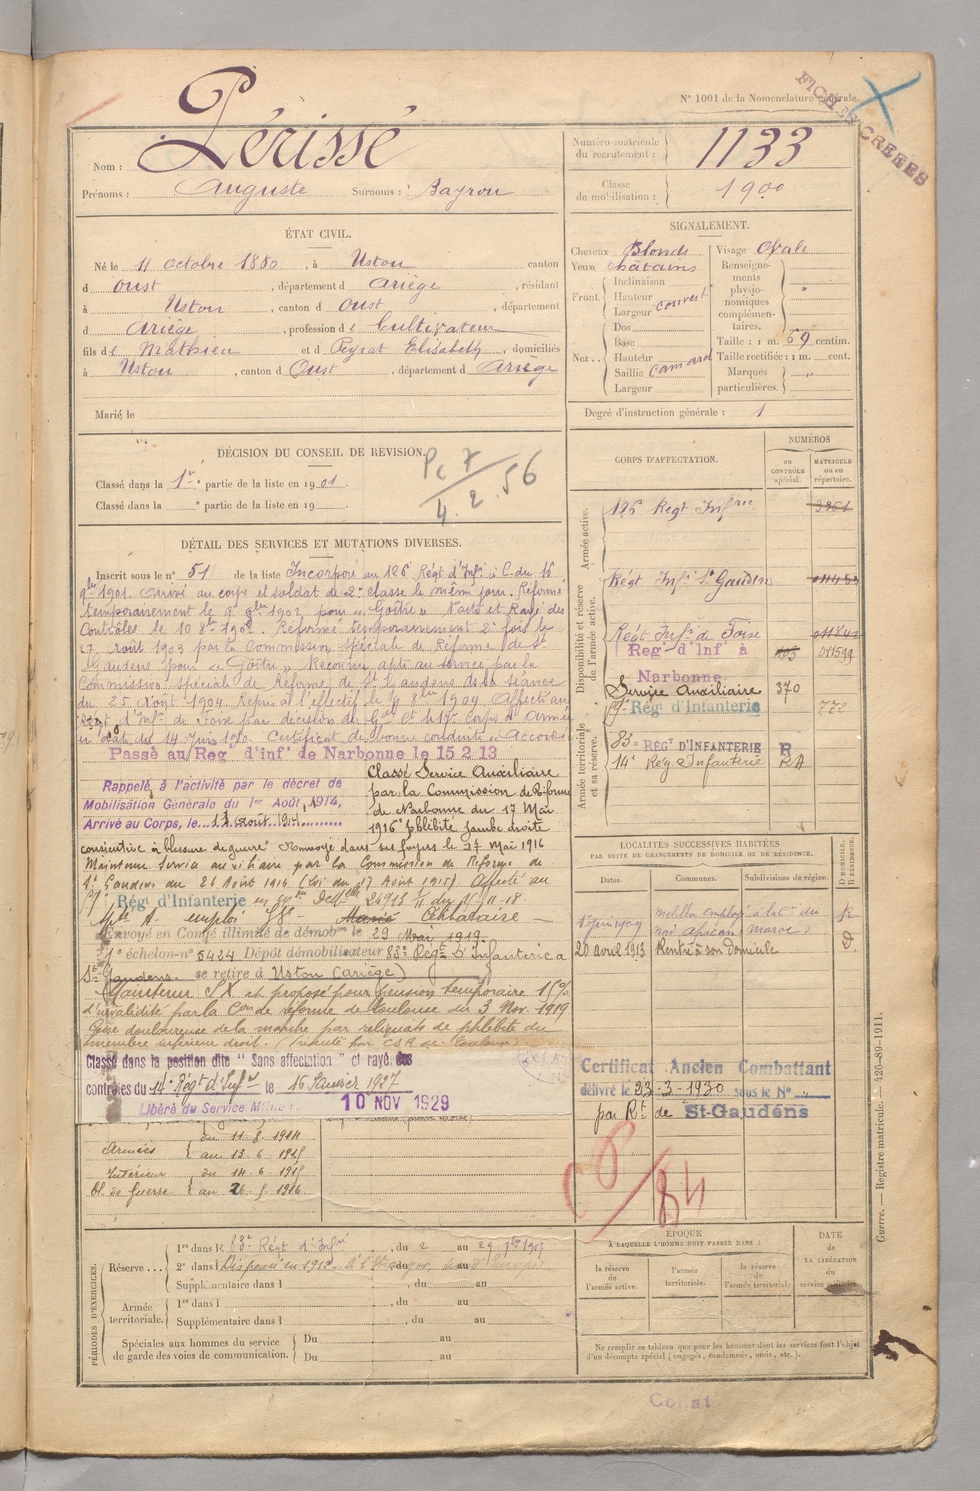 N° 1001 de la Nomenclature générale.
Périssé
Nom :
Prénoms : Auguste Surnoms : Bayrou
Numéro matricule du recrutement : 1133
Classe de mobilisation : 1900
ÉTAT CIVIL.
Né le 11 octobre 1880, à Ustou canton
d Oust, département d Ariège, résidant
à Ustou, canton d Oust, département
d Ariège, profession de Cultivateur
fils de Mathieu et d Peyrat Elisabeth, domiciliés
à Ustou, canton d Oust, département d Ariège
Marié le
SIGNALEMENT.
Cheveux Blonds
Yeux châtains
Front. Inclinaison
Hauteur couvert
Largeur
Nez... Dos
Base
Hauteur
Saillie camard
Largeur
Visage Ovale
Renseignements physionomiques complémentaires. "
Taille : 1 m. 69 centim.
Taille rectifiée : 1 m. cent.
Marques particulières. "
Degré d'instruction générale : 1
DÉCISION DU CONSEIL DE REVISION.
Classé dans la 1re partie de la liste en 1901.
Classé dans la ° partie de la liste en 19
4.2.56
DÉTAIL DES SERVICES ET MUTATIONS DIVERSES.
Inscrit sous le n° 51 de la liste Incorporé au 126 Régt d'Inf. à C. du 16
9bre 1901. Arrivé au corps et soldat de 2e classe le même jour. Réformé
temporairement le pour "Goître" Rayé des
Contrôles le 10 8bre 1902. Réformé temporairement 2e fois le
27 Août 1903 par la Commission spéciale de Réforme de St
Gaudens pour "Goître" Reconnu apte au service par la
Commission spéciale de Réforme de St Gaudens dans sa séance
du 25 Août 1904. Repris à l'effectif le 1904 Affecté au
Régt d'Inf. de Foix par décision du Gal Ct le 17e Corps d'Armée
en date du 14 Juin 1910. Certificat de bonne conduite "Accordé"
Passé au Reg d'inf de Narbonne le 15 2 13
Rappelé à l'activité par le décret de
Mobilisation Générale du 1er Août 1914,
Arrivé au Corps, le 11 août 1914
Classé Service Auxiliaire
par la Commission de Réforme
de Narbonne du 17 Mai
1916 "phlébite jambe droite
consécutive à blessure de guerre" Renvoyé dans ses foyers le 27 mai 1916
Maintenu Service auxiliaire par la Commission de Réforme de
St Gaudens du 26 Août 1916 (Loi du 17 Août 1915) Affecté au
Régt d'Infanterie
emploi Marié Célibataire
Envoyé en Congé illimité de démobon le 29 Mai 1919.
1° échelon n° 5424 Dépôt démobilisateur 83e Régt d'Infanterie à
St Gaudens. se retire à Ustou (Ariège)
Maintenu SX et proposé pour pension temporaire 15%
d'invalidité par la Con de réforme de Toulouse du 3 Nov 1919
Gêne douloureuse de la marche par reliquats de phlébite du
membre inférieur droit.
Classé dans la position dite "Sans affectation" et rayé des
contrôles du 14e Régt d'Infrie le 16 Janvier 1927
Libéré du Service Militaire 10 NOV 1929
Armées du 11 8 1914
au 13 6 1915
Intérieur du 14 6 1915
bl. de Guerre au 26 5 1916
CORPS D'AFFECTATION.
NUMÉROS
au CONTRÔLE spécial.
MATRICULE ou au répertoire.
Armée active.
126 Régt Infrie
Disponibilité et réserve de l'armée active.
Régt Infie St Gaudens
Régt Infie de Foix
Reg d'Inf à Narbonne 011599
Service Auxiliaire 370
Régt d'Infanterie 772
Armée territoriale et sa réserve.
83e RÉGT D'INFANTERIE R
14e Rég Infanterie RA
LOCALITÉS SUCCESSIVES HABITÉES
PAR SUITE DE CHANGEMENTS DE DOMICILE OU DE RÉSIDENCE.
Dates. Communes. Subdivisions de région. D DOMICILE. R RÉSIDENCE.
Melilla employé à la Cie du (Maroc) R
20 avril 1913 Rentré à son domicile D
Certificat Ancien Combattant
délivré le 23-3-1930 sous le N°
par Rt de St-Gaudens
PÉRIODES D'EXERCICES.
Réserve... 1re dans le 83e Régt d'Infrie, du 2 au 29 7bre 1907
2e dans l Dispensé en 1912
Supplémentaire dans l , du au
Armée territoriale. 1re dans l , du au
Supplémentaire dans l , du au
Spéciales aux hommes du service de garde des voies de communication. Du au
Du au
ÉPOQUE
À LAQUELLE L'HOMME DOIT PASSER DANS :
la réserve de l'armée active.
l'armée territoriale.
la réserve de l'armée territoriale
DATE DE LA LIBÉRATION du service militaire.
Ne remplir ce tableau que pour les hommes dont les services font l'objet
d'un décompte spécial (engagés, condamnés, omis, etc.).
Guerre. — Registre matricule. — 426-89-1911.